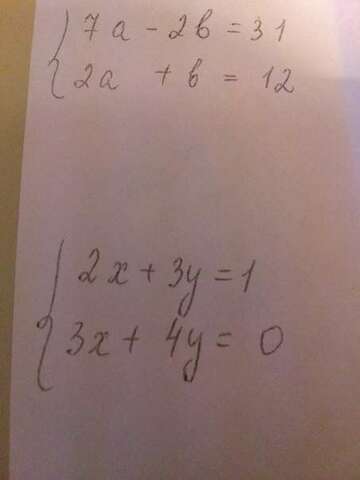 { 7a - 2b = 31
2a + b = 12
{ 2x + 3y = 1
3x + 4y = 0